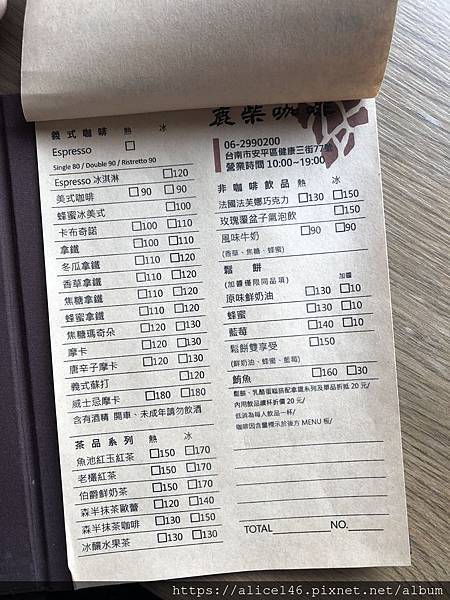 鹿柴咖啡
06-2990200
台南市安平區健康三街77號
營業時間 10:00~19:00
義式咖啡 熱 冰
Espresso □
Single 80 / Double 90 / Ristretto 90
Espresso 冰淇淋 □120
美式咖啡 □90 □90
蜂蜜冰美式 □100
卡布奇諾 □100 □110
拿鐵 □100 □110
冬瓜拿鐵 □110 □120
香草拿鐵 □110 □120
焦糖拿鐵 □110 □120
蜂蜜拿鐵 □110 □120
焦糖瑪奇朵 □120 □130
摩卡 □120 □130
唐辛子摩卡 □120 □130
義式蘇打 □120
威士忌摩卡 □180 □180
含有酒精 開車、未成年請勿飲酒
茶品系列 熱 冰
魚池紅玉紅茶 □150 □170
老欉紅茶 □150 □170
伯爵鮮奶茶 □150 □170
森半抹茶歐蕾 □120 □140
森半抹茶咖啡 □130 □150
冰釀水果茶 □130 □130
非咖啡飲品 熱 冰
法國法芙娜巧克力 □130 □150
玫瑰覆盆子氣泡飲 □150
風味牛奶 □90 □90
(香草、焦糖、蜂蜜)
鬆餅 加醬
(加醬僅限同品項)
原味鮮奶油 □130 □10
蜂蜜 □130 □10
藍莓 □140 □10
鬆餅雙享受 □150
(鮮奶油、蜂蜜、藍莓)
鮪魚 □160 □30
鬆餅、乳酪蛋糕搭配拿鐵系列及單品折抵 20 元/
內用飲品續杯折價 20 元/
低消為每人飲品一杯/
咖啡因含量標示於後方 MENU 板/
TOTAL NO.
https://alice146.pixnet.net/album